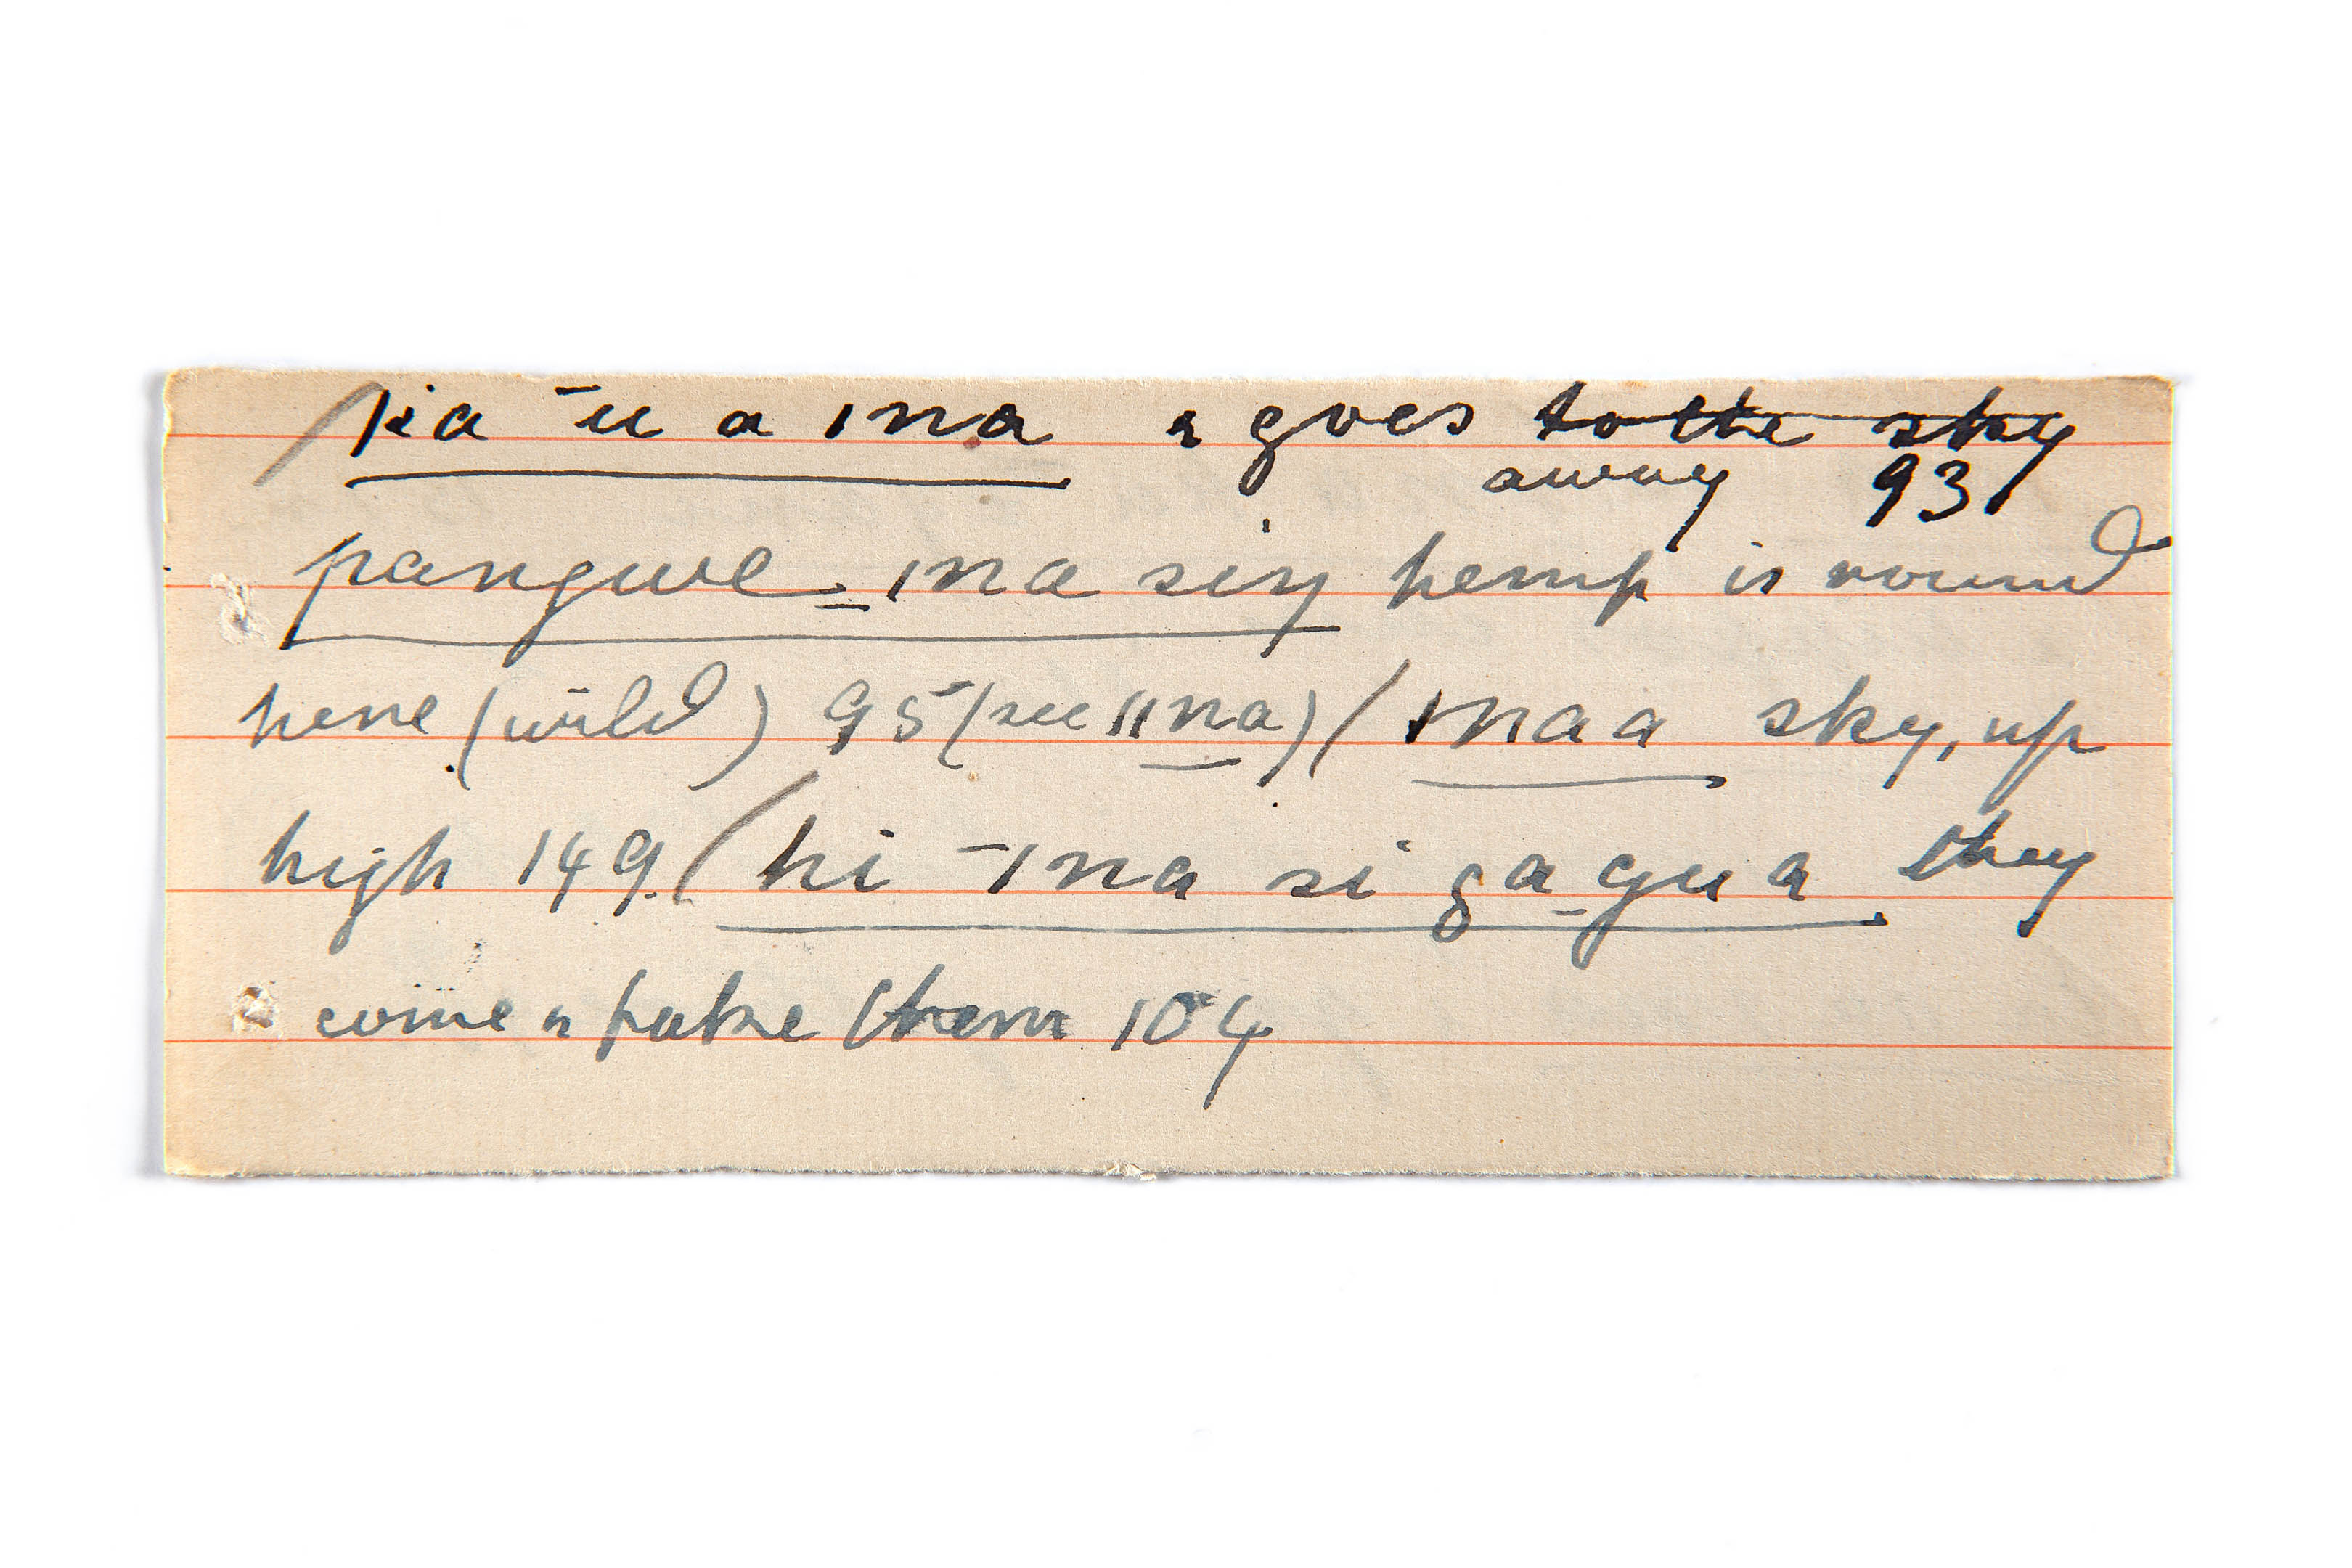 /ka ̄u a ǀna & goes to the sky
away 93
pangwe_ ǀna siŋ hemp is round
here (wild) 95 (see ǁna) / ǀnaa sky, up
high 149. / hi ̄ǀna si g̱a_gu a they
come & take them 104